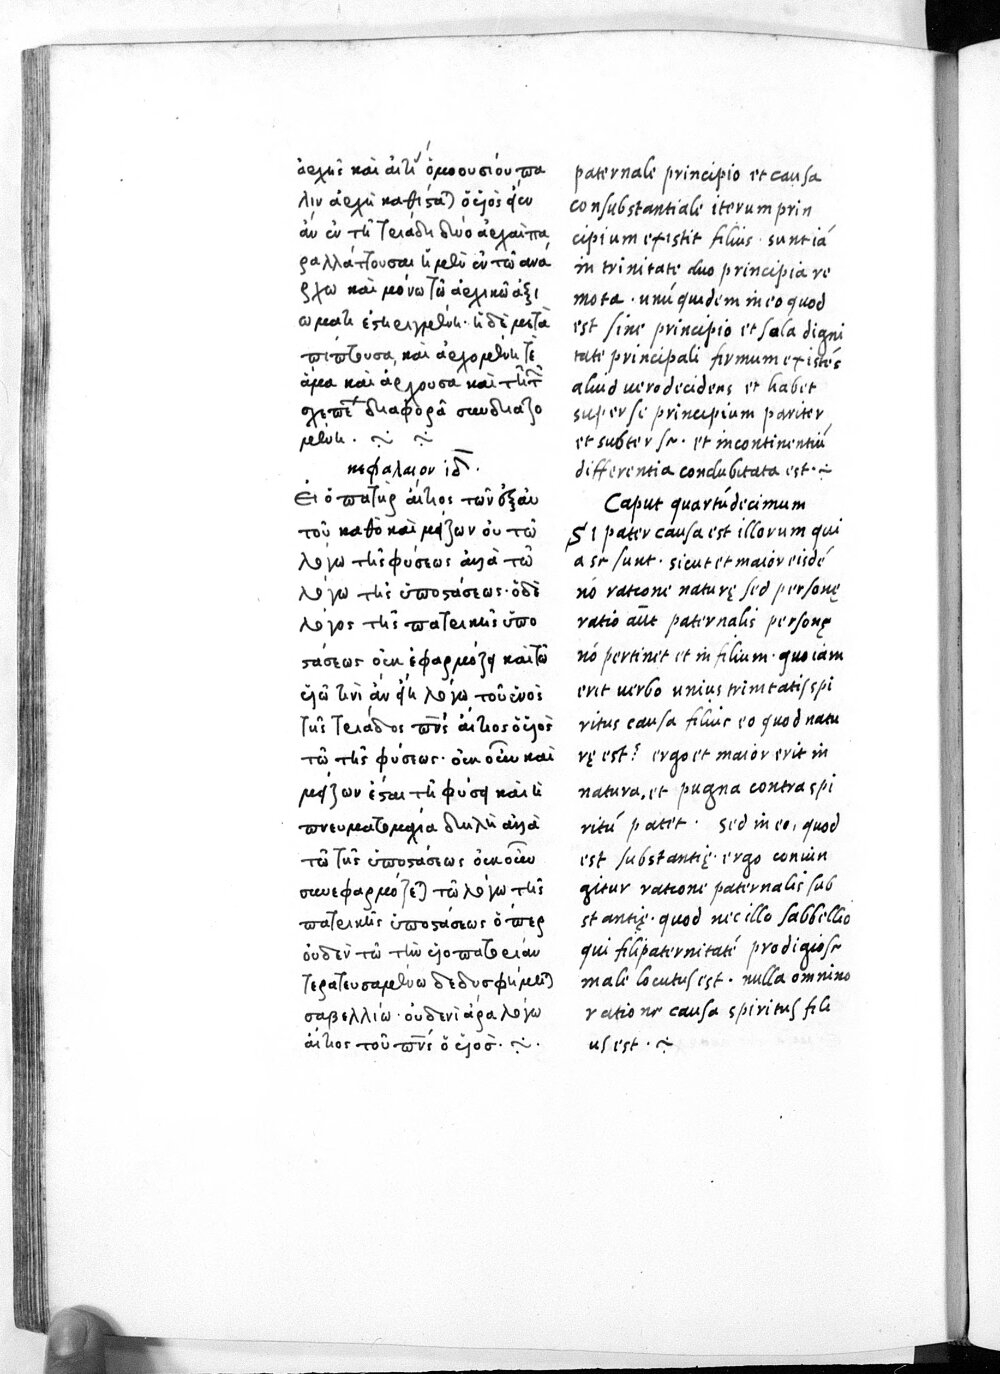 ἀρχῆς καὶ αἰτί ὁμοουσίου πα
λιν ἀρχὴ καθίσα) ὁ ὑιὸς εἶεν
ἂν ἐν τῆ τριάδι δύο ἀρχαὶ πα
ραλλάττουσαι ἡ μὲν ἐν τῶ ἀνά
ρχω καὶ μόνω τῶ ἀρχικῶ ἀξι
ώματι ἐστηριγμένη· ἡ δὲ μετα
πίπτουσα, καὶ ἀρχομένη τε
ἅμα καὶ ἄρχουσα καὶ τῆ τ
σχετ διαφορᾶ συνδιαζο
μένη.
κεφάλαιον ιδ.
Ει ὁ πατὴρ αἴτιος τῶν ἐξ αυ
τοῦ καθὸ καὶ μείζων οὐ τῶ
λόγω τῆς φύσεως ἀλλὰ τῶ
λόγω τῆς ὑποστάσεως· ὁ δὲ
λόγος τῆς πατρικῆς ὑπο
στάσεως οὐκ ἐφαρμόζει καὶ τῶ
ὑιῶ τινὶ ἂν εἴη λόγω τοῦ ἑνὸς
τῆς τριάδος πνς αἴτιος ὁ ὑιὸς
τῶ τῆς φύσεως· οὐκ οῦν καὶ
μείζων ἔσται τῆ φύσει καὶ ἡ
πνευματομαχία δήλη ἀλλὰ
τῶ τῆς ὑποστάσεως οὐκ οῦν
συνεφαρμόζε) τῶ λόγω τῆς
πατρικῆς ὑποστάσεως ὅπερ
οὐδὲν τῶ τὴν ὑιοπατορίαν
τερατευσαμένω δεδυσφήμη)
σαβελλίω· οὐδενὶ ἄρα λόγω
αἴτιος τοῦ πνς ὁ ὑιός.
paternale principio et causa
consubstantiale iterum prin
cipium existit filius· sunt iā
in trinitate duo principia re
mota· unū quidem in eo quod
est sine principio et sola digni
tate principali firmum existēs
aliud uero decidens et habet
super se principium pariter
et subter se· et incontinentiū
differentia condubitata est·
Caput quartūdecimum
SI pater causa est illorum qui
a se sunt· sicut et maior eisdē
nō ratione naturę sed personę
ratio aūt paternalis personę
nō pertinet et in filium· quo iam
erit uerbo unius trinitatis spi
ritus causa filius eo quod natu
rę est? ergo et maior erit in
natura, et pugna contra spi
ritū patet· Sed in eo, quod
est substantię· ergo coniun
gitur ratione paternalis sub
stantię· quod nec illo sabbellio
qui filipaternitatē prodigiose
male locutus est· nulla omnino
ratione causa spiritus fili
us est·